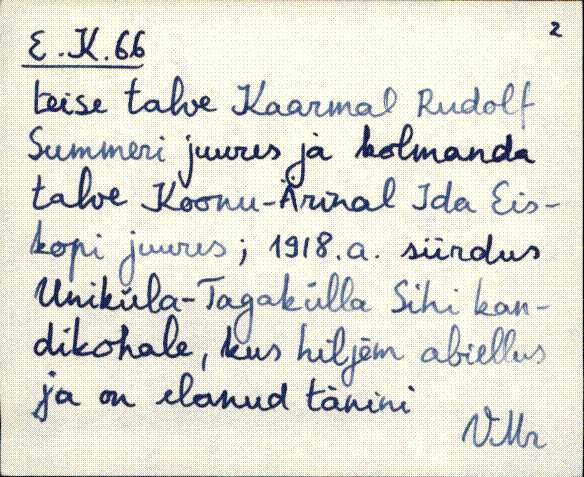 2
E.K.66
teise talve Kaarmal Rudolf
Summeri juures ja kolmanda
talve Koonu-Ärinal Ida Eis-
kopi juures; 1918.a. siirdus
Uniküla-Tagakülla Sihi kan-
dikohale, kus hiljem abiellus
ja on elanud tänini
VMr